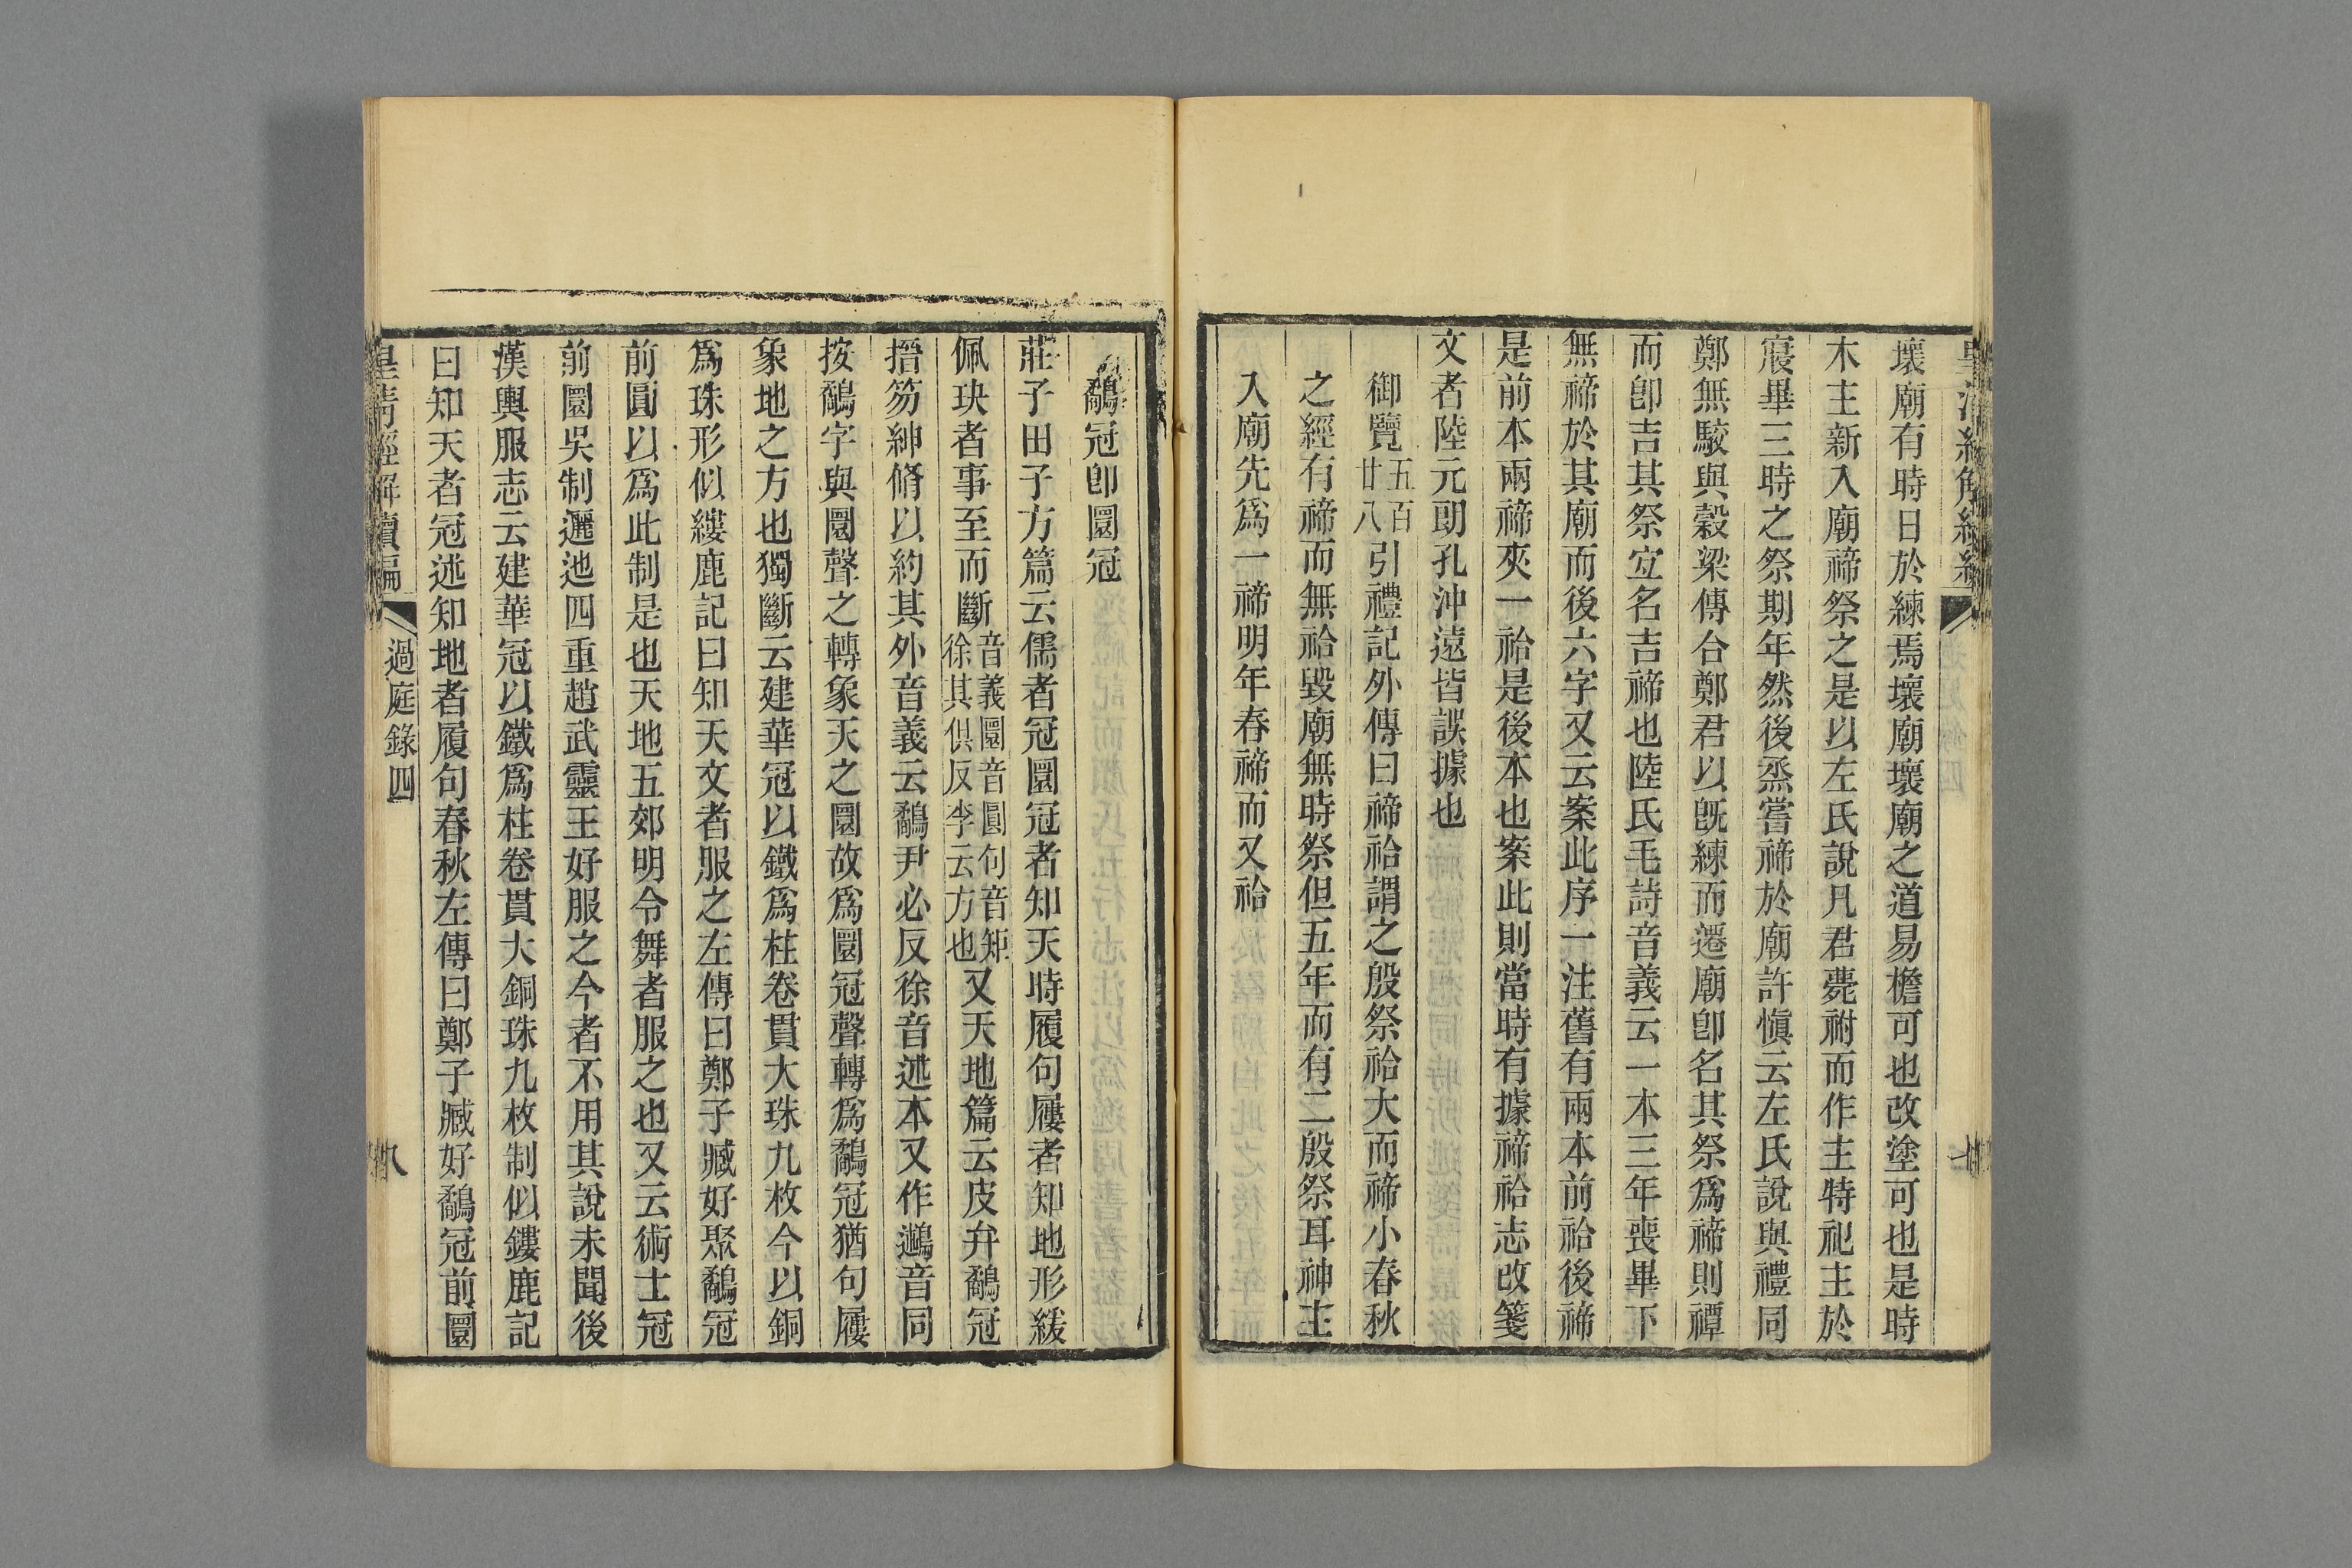 壞廟有時日於練焉壞廟壞廟之道易檐可也改塗可也是時
木主新入廟禘祭之是以左氏說凡君薨祔而作主特祀主於
寢畢三時之祭期年然後烝嘗禘於廟許愼云左氏說與禮同
鄭無駮與穀梁傳合鄭君以旣練而遷廟卽名其祭爲禘則禫
而卽吉其祭宐名吉禘也陸氏毛詩音義云一本三年喪畢下
無禘於其廟而後六字又云案此序一注舊有兩本前祫後禘
是前本兩禘夾一祫是後本也案此則當時有據禘祫志改箋
文者陸元朗孔沖遠皆誤據也
御覽五百廿八引禮記外傳曰禘祫謂之殷祭祫大而禘小春秋
之經有禘而無祫毀廟無時祭但五年而有二殷祭耳神主
入廟先爲一禘明年春禘而又祫
鷸冠卽圜冠
莊子田子方篇云儒者冠圜冠者知天時履句屨者知地形緩
佩玦者事至而斷音義圜音圓句音矩徐其俱反李云方也又天地篇云皮弁鷸冠
搢笏紳脩以約其外音義云鷸尹必反徐音述本又作鷸音同
按鷸字與圜聲之轉象天之圜故爲圜冠聲轉爲鷸冠猶句屨
象地之方也獨斷云建華冠以鐵爲柱卷貫大珠九枚今以銅
爲珠形似縷鹿記曰知天文者服之左傳曰鄭子臧好聚鷸冠
前圓以爲此制是也天地五郊明令舞者服之也又云術士冠
前圜吳制邐迆四重趙武靈王好服之今者不用其說未聞後
漢輿服志云建華冠以鐵爲柱卷貫大銅珠九枚制似鏤鹿記
曰知天者冠述知地者履句春秋左傳曰鄭子臧好鷸冠前圜
皇清經解續編 過庭錄四 八